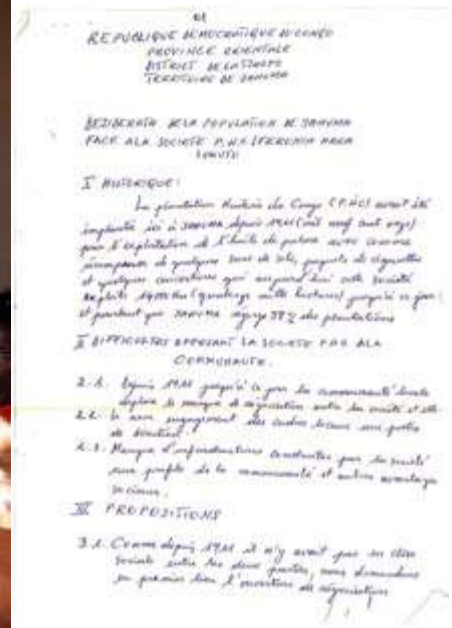 REPUBLIQUE DEMOCRATIQUE DU CONGO
PROVINCE ORIENTALE
DISTRICT DE LA TSHOPO
TERRITOIRE DE
DESIDERATA DE LA POPULATION DE
FACE A LA SOCIETE P.H.C (FERONIA PARA
I HISTORIQUE:
La plantation Huilerie du Congo (P.H.C) avait été
implantée ici à depuis 1911 (mil neuf cent onze)
pour l'exploitation de l'huile de palme avec comme
de quelques sacs de sels, paquets de cigarettes
et quelques couvertures qui aujourd'hui cette société
exploite (quatorze mille hectares) jusqu'à ce jour;
et pourtant que des plantations
II DIFFICULTES OPPOSANT LA SOCIETE P.H.C A LA
COMMUNAUTE.
2.1. Depuis 1911 jusqu'à ce jour la communauté locale
déplore le manque de négociation entre la société et elle
2.2. Le non engagement des cadres locaux aux postes
de
2.3. Manque d'infrastructures construites par la société
aux profits de la communauté et autres avantages
sociaux.
III PROPOSITIONS
3.1. Comme depuis 1911 il n'y avait pas
sociale entre les deux parties, nous demandons
en premier lieu l'ouverture de négociations